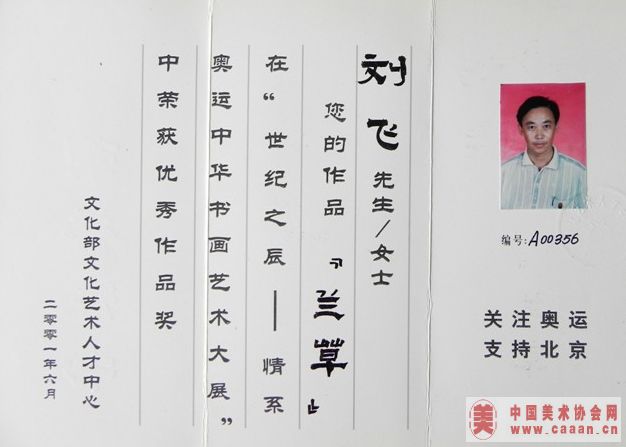 刘飞先生/女士
您的作品『兰草』
在“世纪之辰——情系
奥运中华书画艺术大展”
中荣获优秀作品奖
文化部文化艺术人才中心
二零零一年六月
编号:A00356
关注奥运
支持北京
美
中国美术协会网
www.caaan.cn